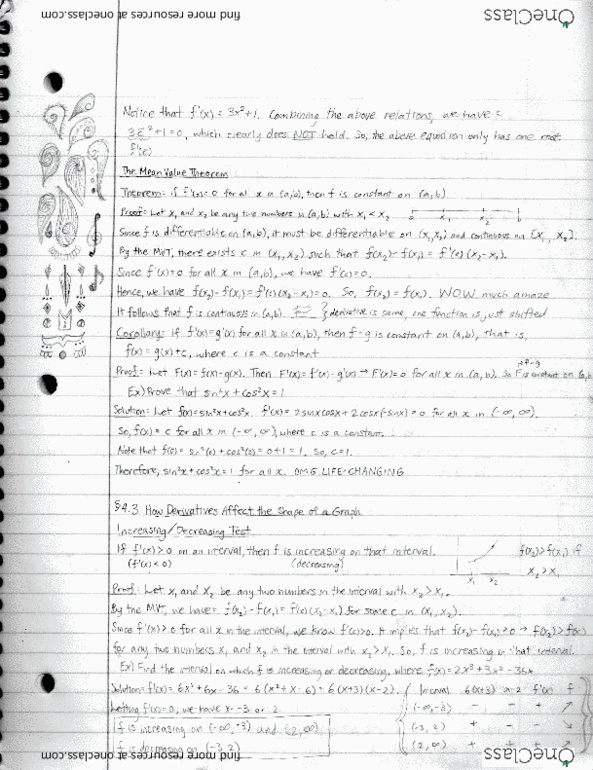 find more resources at oneclass.com
OneClass
Notice that f'(x) = 3x²+1. Combining the above relations, we have:
3ξ²+1=0, which clearly does NOT hold. So, the above equation only has one root.
f'(ξ)
The Mean Value Theorem
Theorem: if f'(x)=0 for all x in (a,b), then f is constant on (a,b)
Proof: Let x₁ and x₂ be any two numbers in (a,b) with x₁<x₂ a x₁ x₂ b
Since f is differentiable on (a,b), it must be differentiable on (x₁,x₂) and continuous on [x₁, x₂].
By the MVT, there exists c in (x₁,x₂) such that f(x₂)-f(x₁) = f'(c)(x₂-x₁).
Since f'(x)=0 for all x in (a,b), we have f'(c)=0.
Hence, we have f(x₂)-f(x₁)=f'(c)(x₂-x₁)=0. So, f(x₂)=f(x₁). WOW much amaze
It follows that f is continuous in (a,b). } derivative is same, one function is just shifted
Corollary: If f'(x)=g'(x) for all x in (a,b), then f-g is constant on (a,b), that is,
f(x)=g(x)+c, where c is a constant
→f-g
Proof: Let F(x)=f(x)-g(x). Then F'(x)=f'(x)-g'(x) → F'(x)=0 for all x in (a,b). So F is constant on (a,b)
Ex) Prove that sin²x + cos²x = 1
Solution: Let f(x)=sin²x+cos²x. f'(x)=2sinxcosx+2cosx(-sinx)=0 for all x in (-∞,∞).
So, f(x)=c for all x in (-∞,∞), where c is a constant.
Note that f(0)=sin²(0)+cos²(0)=0+1=1. So, c=1.
Therefore, sin²x+cos²x=1 for all x. OMG LIFE-CHANGING
§4.3 How Derivatives Affect the Shape of a Graph
Increasing/Decreasing Test
If f'(x)>0 on an interval, then f is increasing on that interval. f(x₂)>f(x₁) if
(f'(x)<0) (decreasing) x₁ x₂ x₂>x₁
Proof: Let x₁ and x₂ be any two numbers in the interval with x₂>x₁.
By the MVT, we have: f(x₂)-f(x₁)=f'(c)(x₂-x₁) for some c in (x₁,x₂).
Since f'(x)>0 for all x in the interval, we know f'(c)>0. It implies that f(x₂)-f(x₁)>0 → f(x₂)>f(x₁)
for any two numbers x₁ and x₂ in the interval with x₂>x₁. So, f is increasing in that interval.
Ex) Find the interval on which f is increasing or decreasing, where f(x)=2x³+3x²-36x
Solution: f'(x)=6x²+6x-36=6(x²+x-6)=6(x+3)(x-2). Interval 6(x+3) x-2 f'(x) f
Letting f'(x)=0, we have x=-3 or 2. (-∞,-3) - - + ↗
f is increasing on (-∞,-3) and (2,∞) (-3,2) + - - ↘
f is decreasing on (-3,2) (2,∞) + + + ↗
find more resources at oneclass.com
OneClass